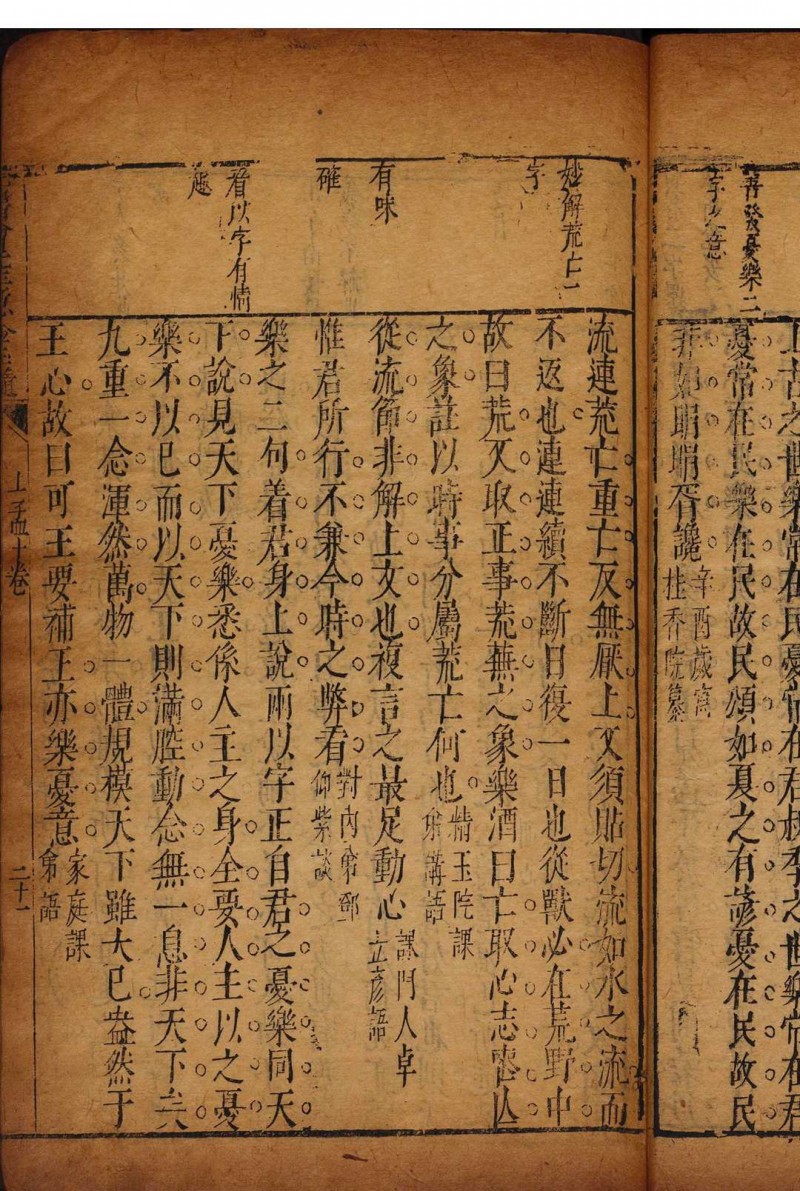 再發憂樂二
字之意
上古之世樂常在民憂常在君叔季之世樂常在君
憂常在民樂在民故民頌如夏之有諺憂在民故民
非如睊睊胥讒辛酉歲寓
桂香院纂
妙解荒亡二
字
有味
確
看以字有情
趣
流連荒亡重亡反無厭上又須貼切流如水之流而
不返也連連續不斷日復一日也從獸必在荒野中
故曰荒又取正事荒蕪之象樂酒曰亡取心志喪亡
之象註以時事分屬荒亡何也精玉院課
弟講語
從流節非解上文也複言之最足動心課門人卓
立彥語
惟君所行不兼今時之弊看對內弟鄒
仰紫談
樂之二句着君身上說兩以字正自君之憂樂同天
下說見天下憂樂悉係人主之身全要人主以之憂
樂不以已而以天下則滿腔動念無一息非天下矣
九重一念渾然萬物一體規模天下雖大已盎然于
王心故曰可王要補王亦樂憂意家庭課
弟語
上孟十卷
二十一